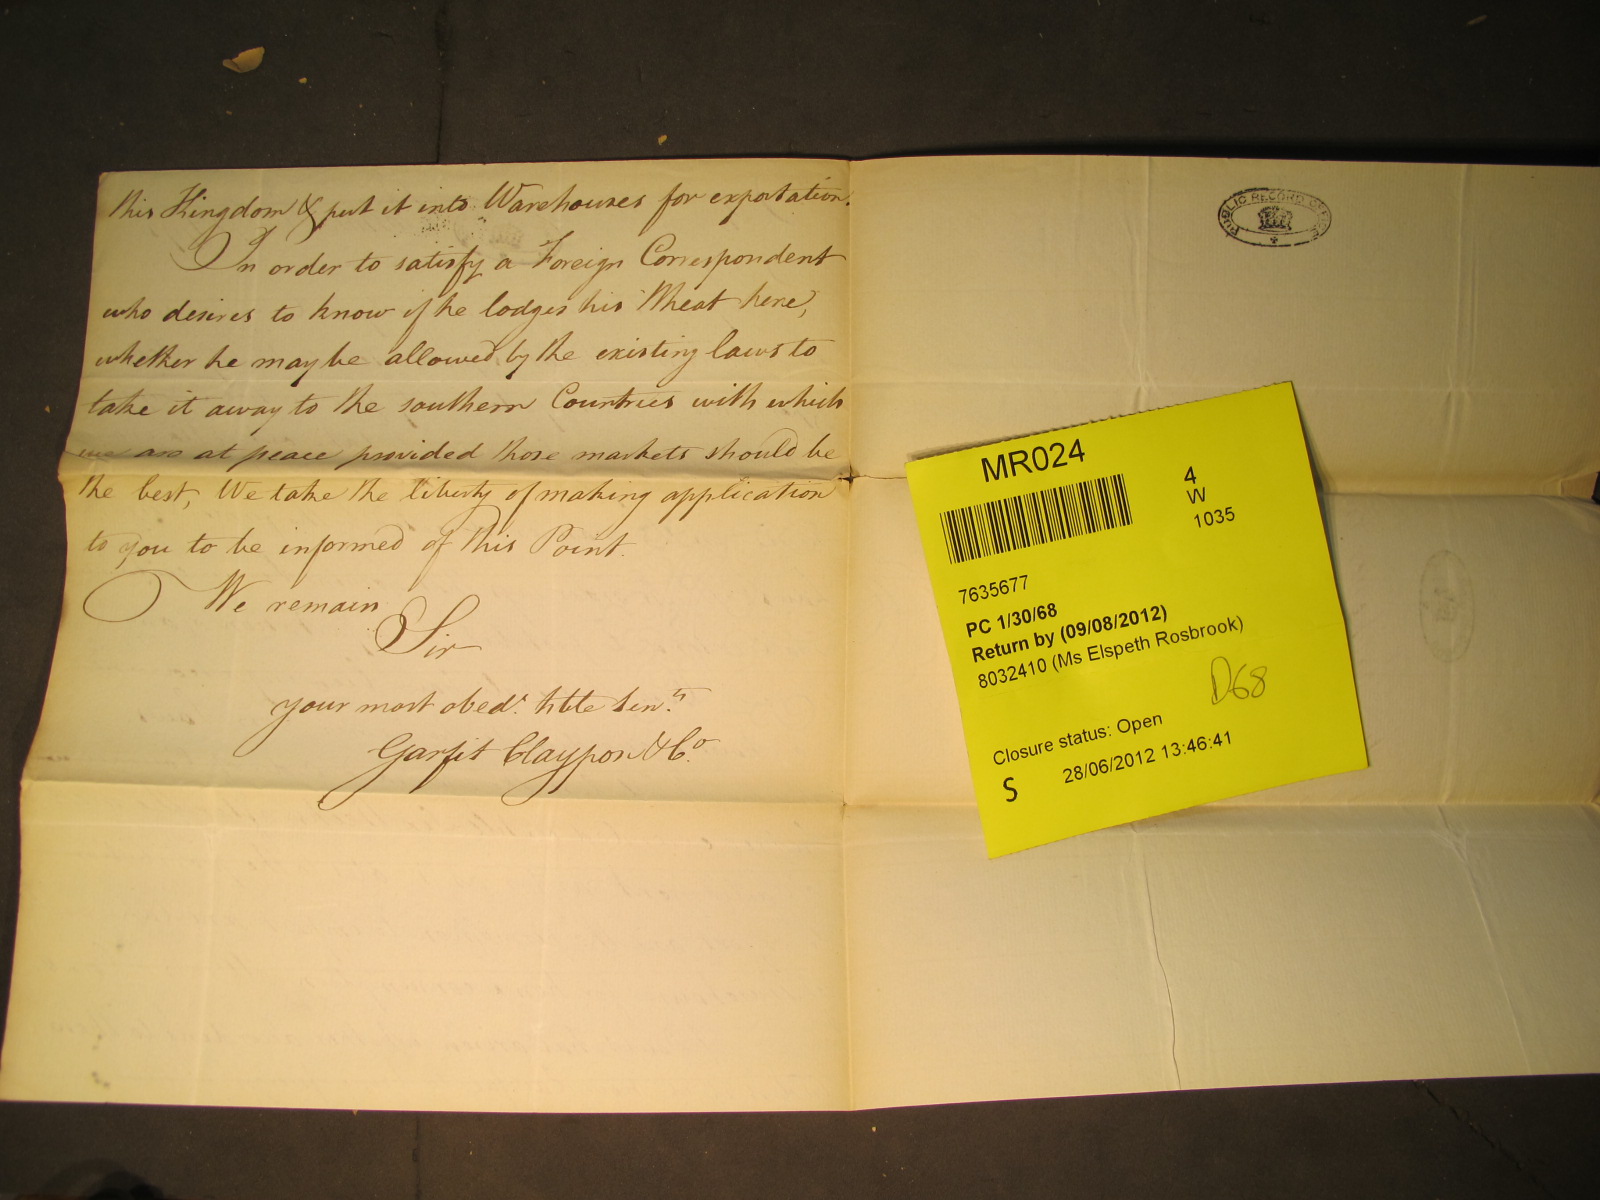 this Kingdom & put it into Warehouses for exportation.
In order to satisfy a Foreign Correspondent
who desires to know if he lodges his Wheat here,
whether he may be allowed by the existing laws to
take it away to the southern Countries with which
we are at peace provided those markets should be
the best, We take the liberty of making application
to you to be informed of this Point.
We remain
Sir
your most obed.t hble serv.ts
Garfit Claypon & Co.
PUBLIC RECORD OFFICE
MR024
4
W
1035
7635677
PC 1/30/68
Return by (09/08/2012)
8032410 (Ms Elspeth Rosbrook)
D68
Closure status: Open
S 28/06/2012 13:46:41